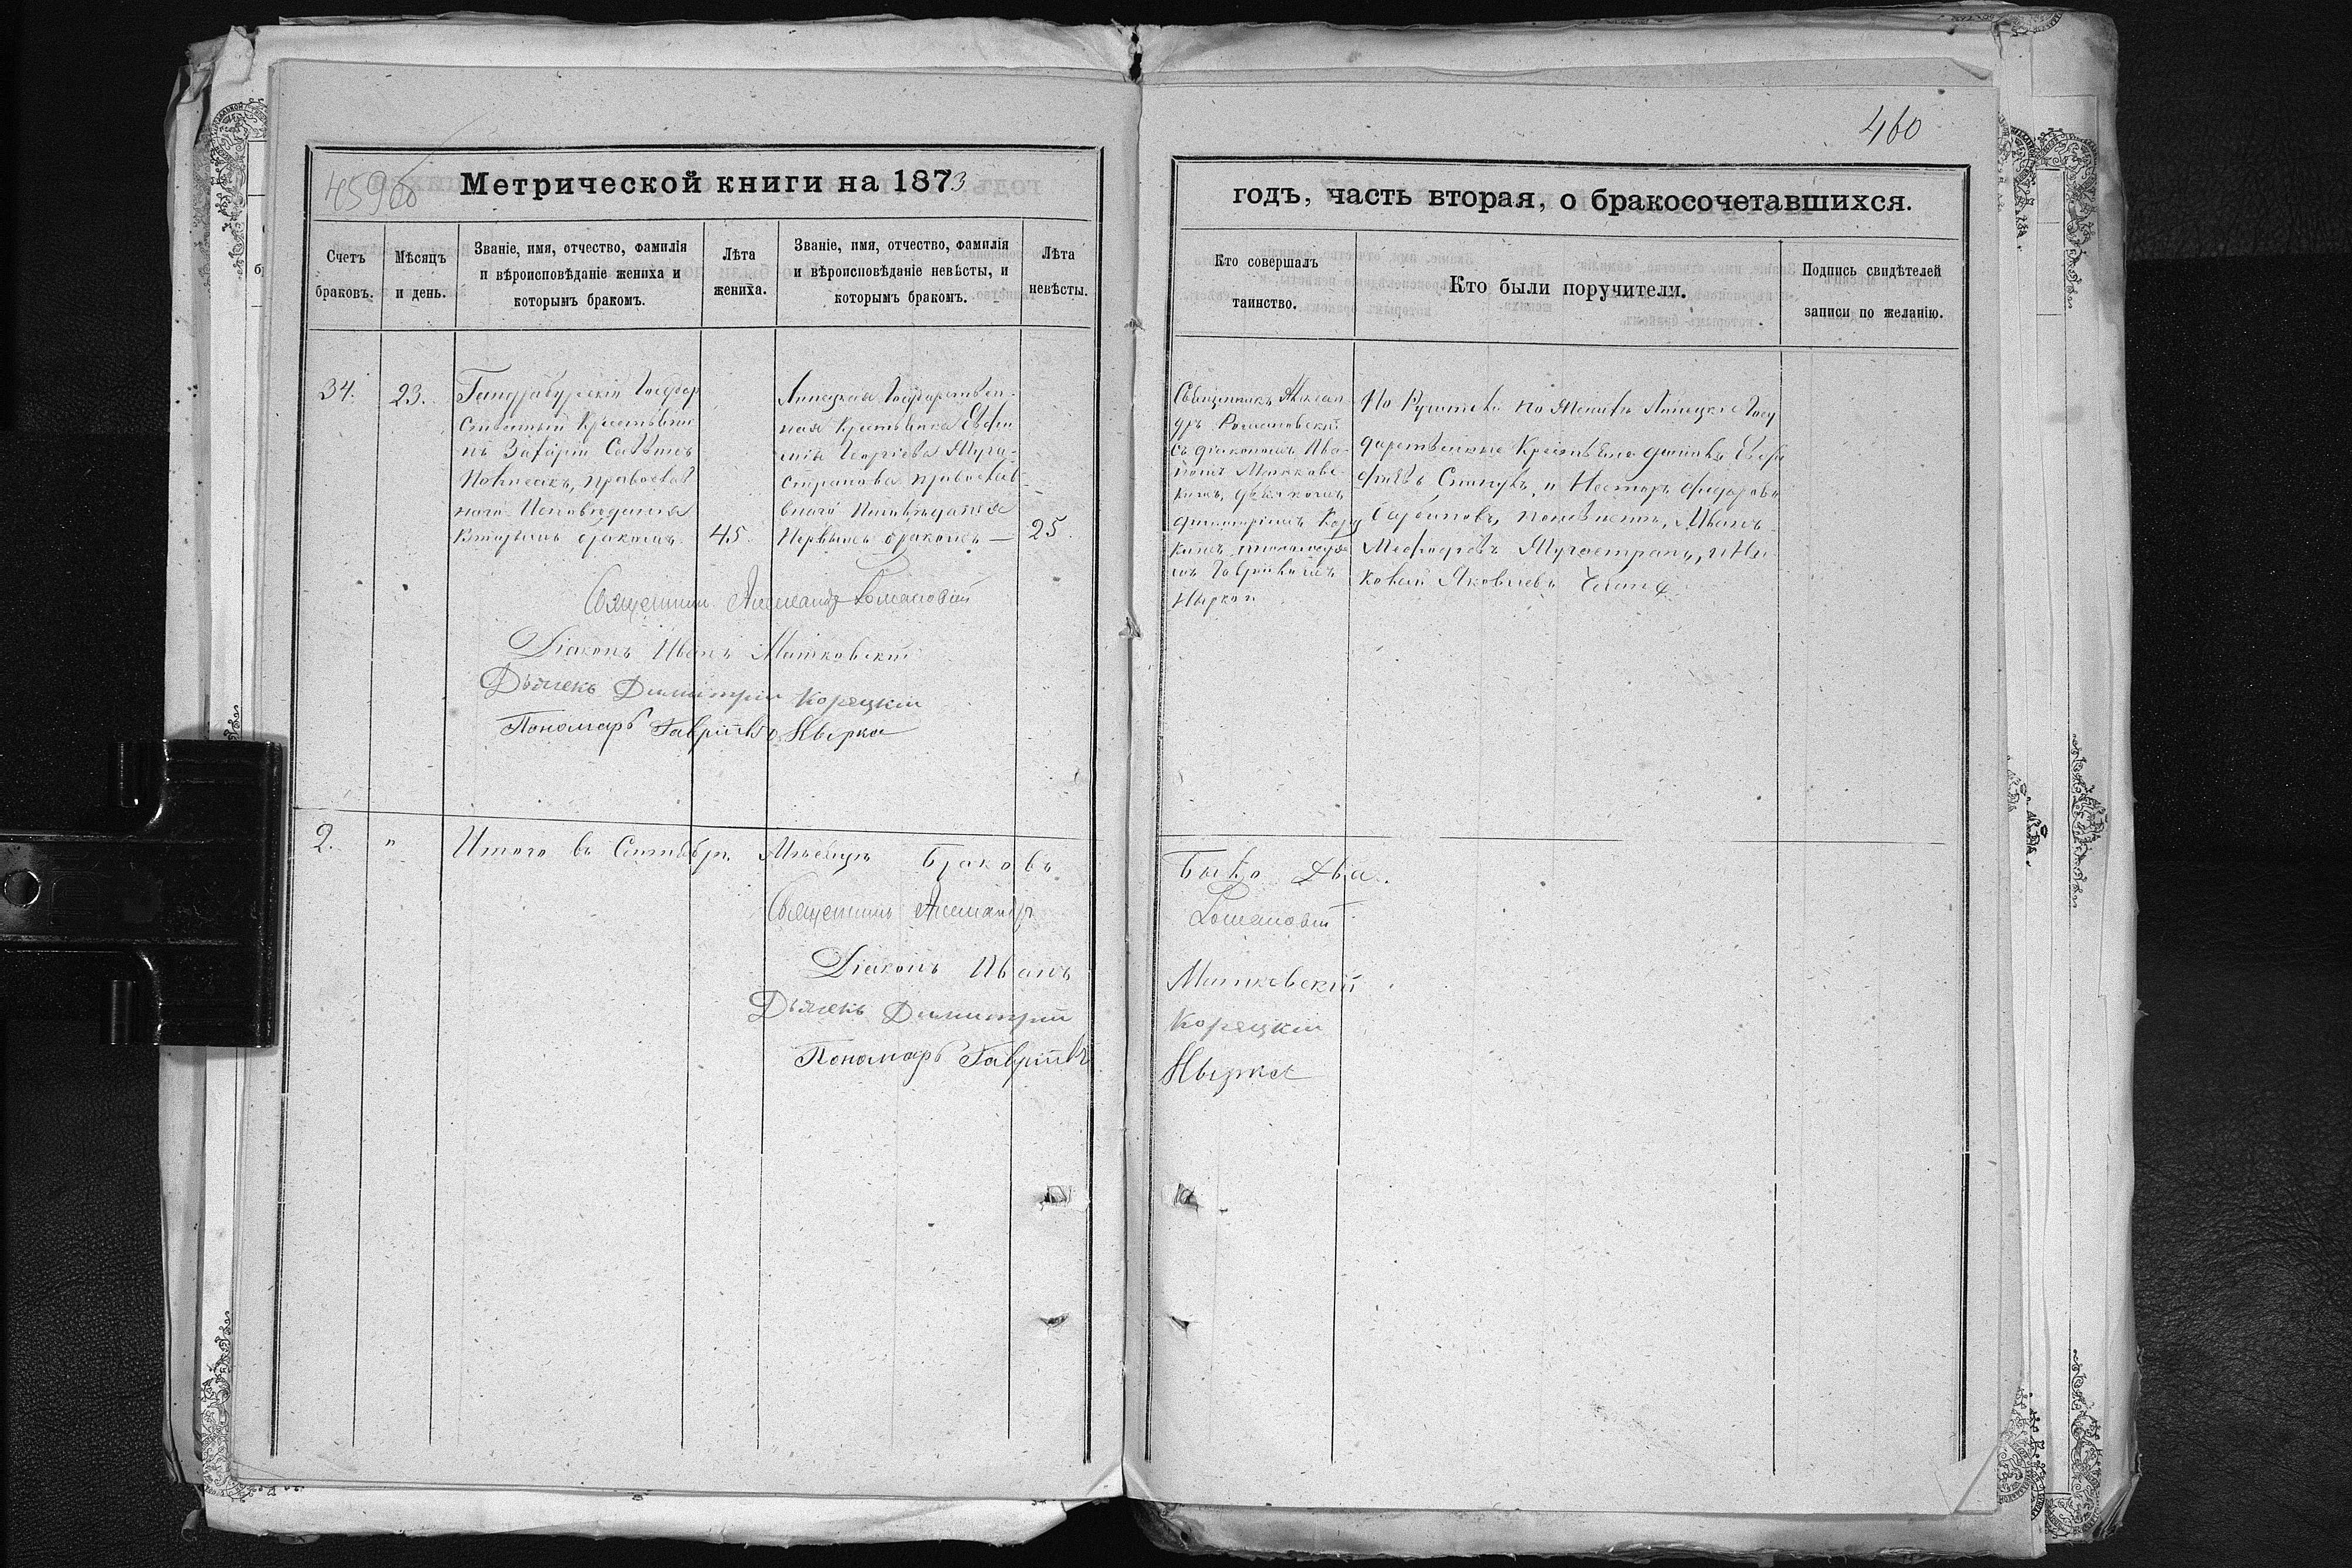 460
Метрической книги на 1873
годъ, часть вторая, о бракосочетавшихся.
Счетъ браковъ.
Мѣсяцъ и день.
Званіе, имя, отчество, фамилія
и вѣроисповѣданіе жениха и
которымъ бракомъ.
Лѣта жениха.
Званіе, имя, отчество, фамилія
и вѣроисповѣданіе невѣсты, и
которымъ бракомъ.
Лѣта невѣсты.
Кто совершалъ
таинство.
Кто были поручители.
Подпись свидѣтелей
записи по желанію.
34.
23.
Государ
ственный Крестьяни
нъ Захарій
православ
наго Исповѣданія
Вторымъ бракомъ
45.
Липецкая Государствен
ная Крестьянка Евфи
мія Георгіева
православ
наго Исповѣданія
Первымъ бракомъ —
25.
Священникъ Алексан
дръ Романовскій
съ діакономъ Ива
номъ Матковс
кимъ, дьячкомъ
Димитріемъ Коре
цкимъ пономаре
мъ Гавріиломъ
Нырка
По Женихѣ Липецкіе Госу
дарственные Крестьяне
и Несторъ Федоровъ
по невѣстѣ, Иванъ
и Ни
колай Яковлевъ
Священникъ Александръ Романовскій
Діаконъ Иванъ Матковскій
Дьячекъ Димитрій Корецкій
Пономарь Гавріилъ Нырка
2.
"
Итого въ Сентябрѣ Мѣсяцѣ Браковъ
Было Два.
Священникъ Александръ
Романовскій
Діаконъ Иванъ
Матковскій
Дьячекъ Димитрій
Корецкій
Пономарь Гавріилъ
Нырка